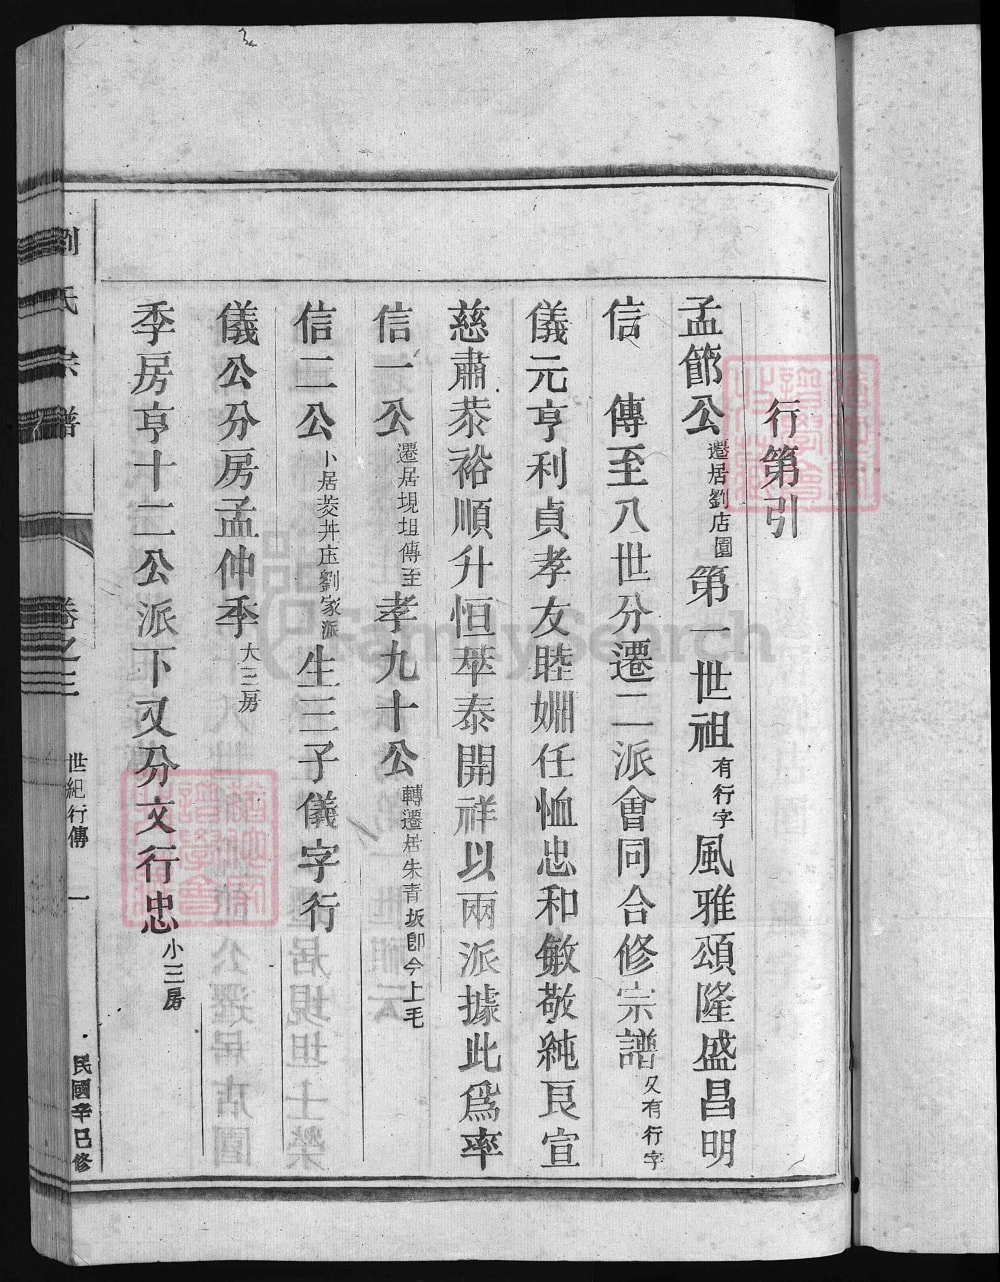 行第引
孟節公遷居劉店園第一世祖有行字風雅頌隆盛昌明
信　傳至八世分遷二派會同合修宗譜又有行字
儀元亨利貞孝友睦婣任恤忠和敏敬純良宣
慈肅恭裕順升恒萃泰開祥以兩派據此爲率
信一公遷居垷坦傳至孝九十公轉遷居朱青坂卽今上毛
信二公卜居菱井庄劉家派生三子儀字行
儀公分房孟仲季大三房
季房亨十二公派下又分文行忠小三房
劉氏宗譜　卷之三　世紀行傳　一　民國辛巳修
FamilySearch